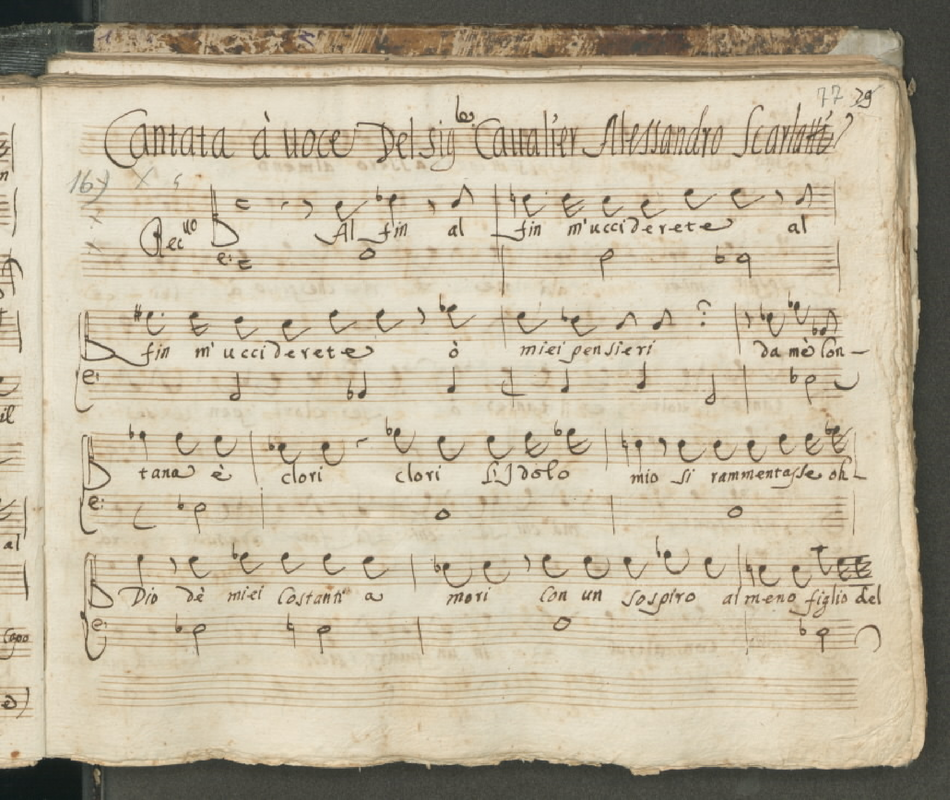 77 39
Cantata à uoce Del sig.le Caualier Alessandro Scarlatti
167
Rec.uo Al fin al fin m'ucciderete al
fin m'ucciderete ò miei pensieri da mè lon-
tana è clori clori L'Jdolo mio si rammentasse oh
Dio dè miei Costanti a mori Con un sospiro almeno figlio del
n
il
al
Capo